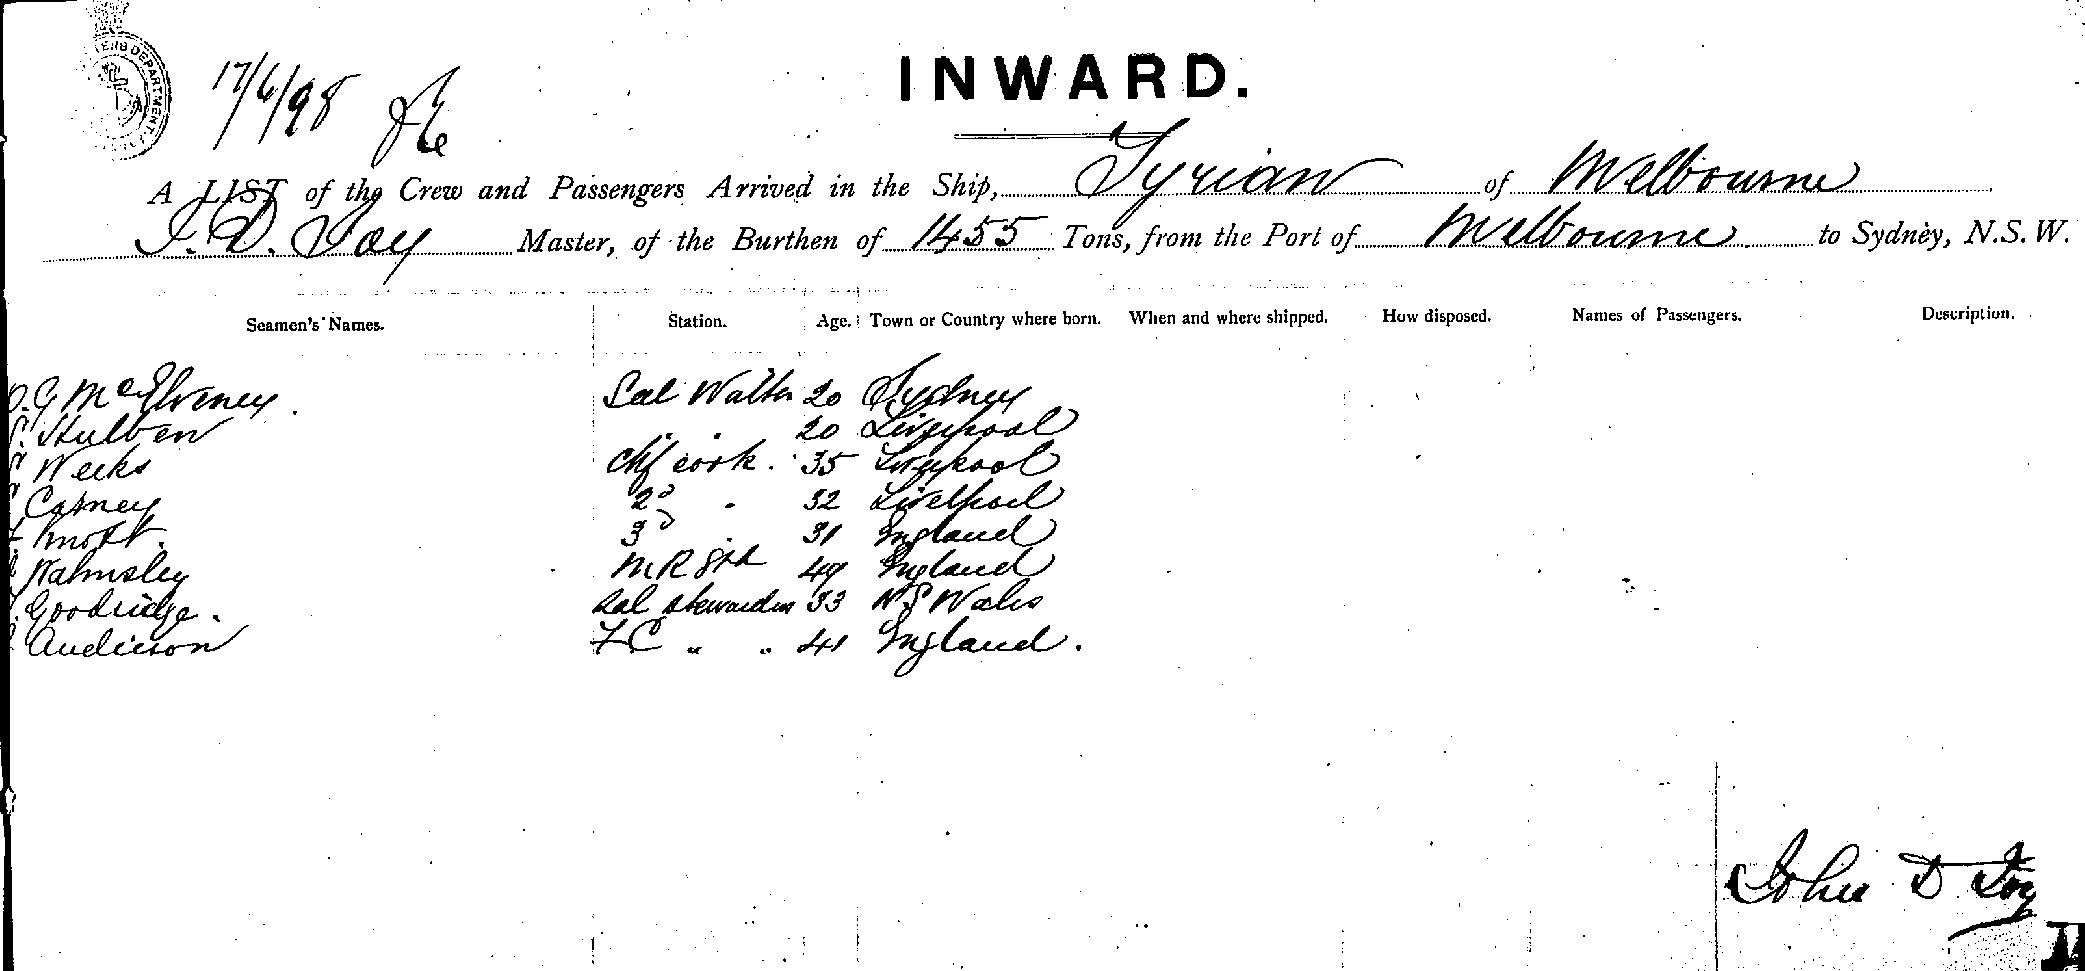 17/6/98
INWARD.
A LIST of the Crew and Passengers Arrived in the Ship, Tyrian of Melbourne
J. D. Toy Master, of the Burthen of 1455 Tons, from the Port of Melbourne to Sydney, N.S.W.
Seamen's Names. Station. Age. Town or Country where born. When and where shipped. How disposed. Names of Passengers. Description.
G McElveney Sal Waiter 20 Sydney
Hulben " " 20 Liverpool
Weeks Chf cook. 35 Liverpool
Carney 2d " 32 Liverpool
Knott. 3d " 31 England
Walmsley M R Std 49 England
Goodridge. Sal Stewardess 33 N S Wales
Anderson F C " " 41 England.
John D Toy